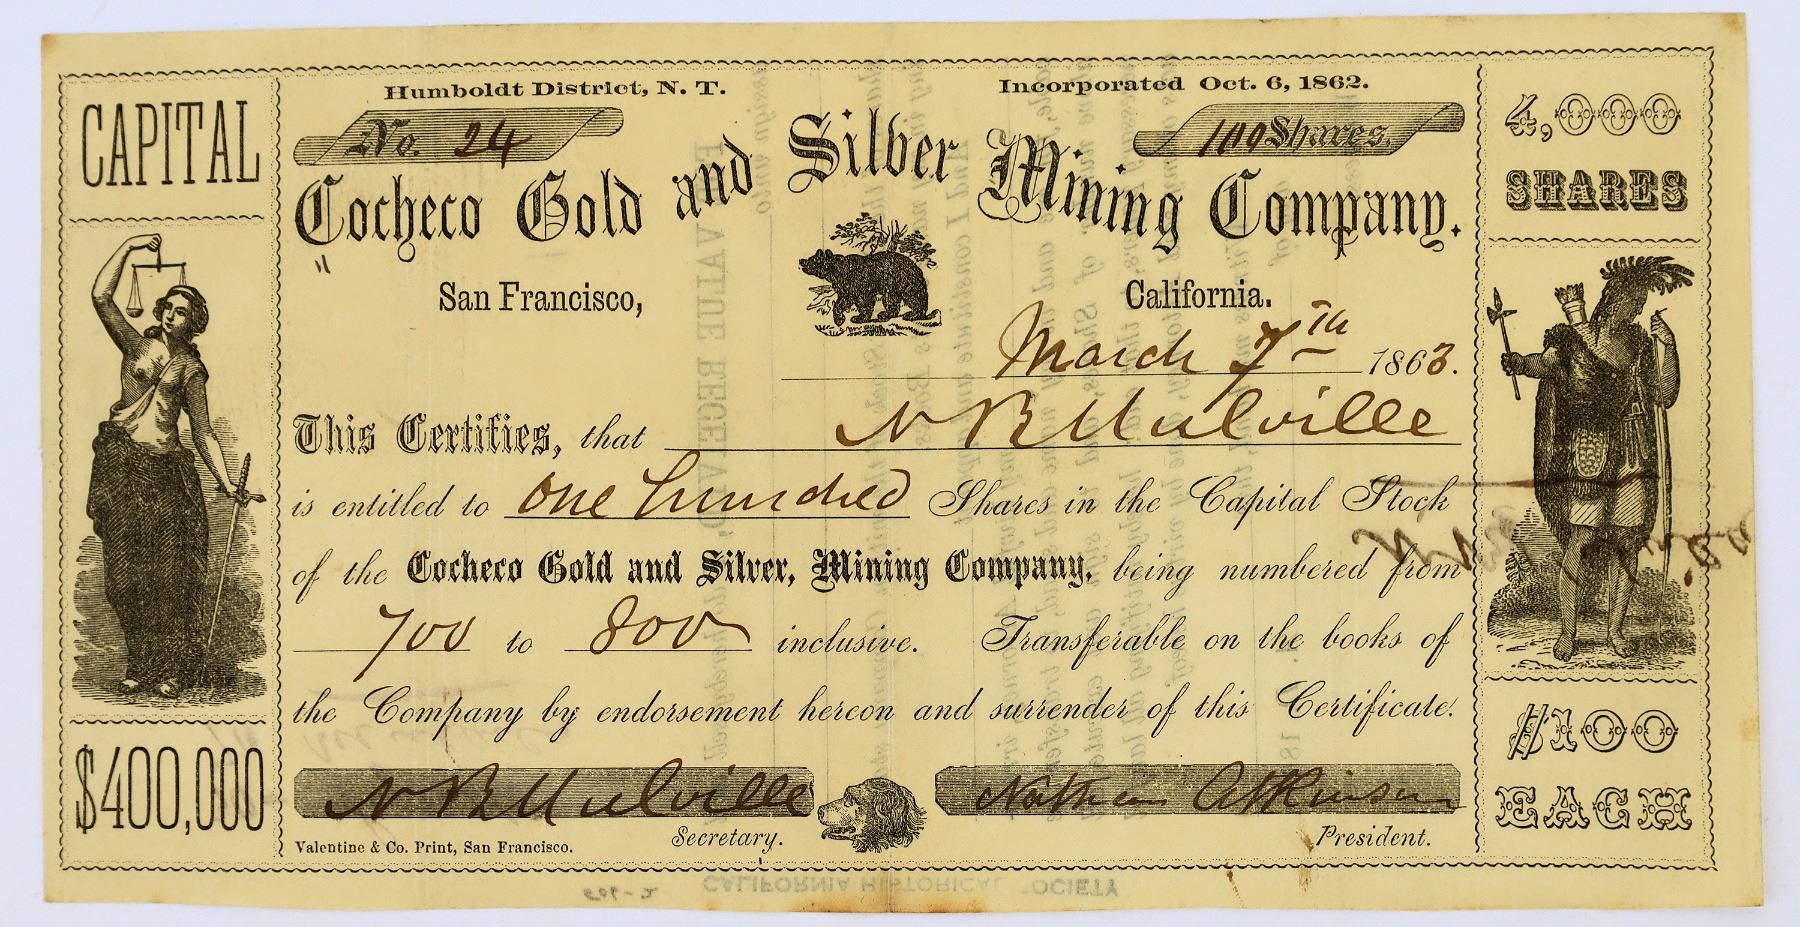 Humboldt District, N. T.
Incorporated Oct. 6, 1862.
CAPITAL
No. 24
100 Shares.
4,000
SHARES
Cocheco Gold and Silver Mining Company.
"
San Francisco,
California.
March 7th 1863.
This Certifies, that N B Mulville
is entitled to One hundred Shares in the Capital Stock
of the Cocheco Gold and Silver, Mining Company, being numbered from
700 to 800 inclusive. Transferable on the books of
the Company by endorsement hereon and surrender of this Certificate.
$400,000
$100
EACH
N B Mulville
Nathan Atkinson
Secretary.
President.
Valentine & Co. Print, San Francisco.
CALIFORNIA HISTORICAL SOCIETY